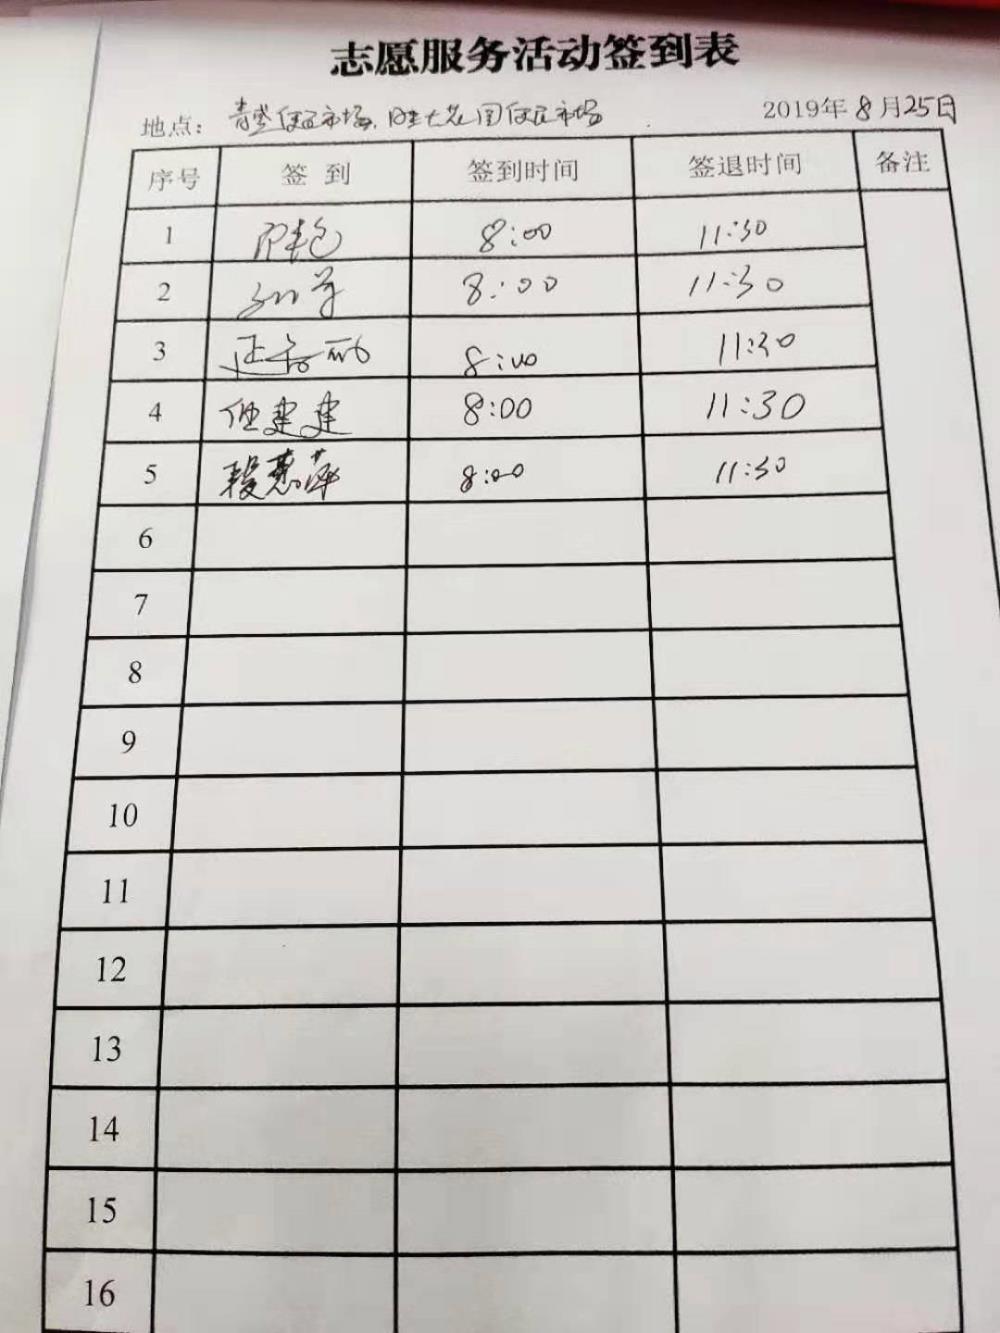 志愿服务活动签到表
地点： 便民市场、花园便民市场 2019年8月25日
序号 签到 签到时间 签退时间 备注
1 8:00 11:30
2 8:00 11:30
3 8:00 11:30
4 建建 8:00 11:30
5 段惠萍 8:00 11:30
6
7
8
9
10
11
12
13
14
15
16